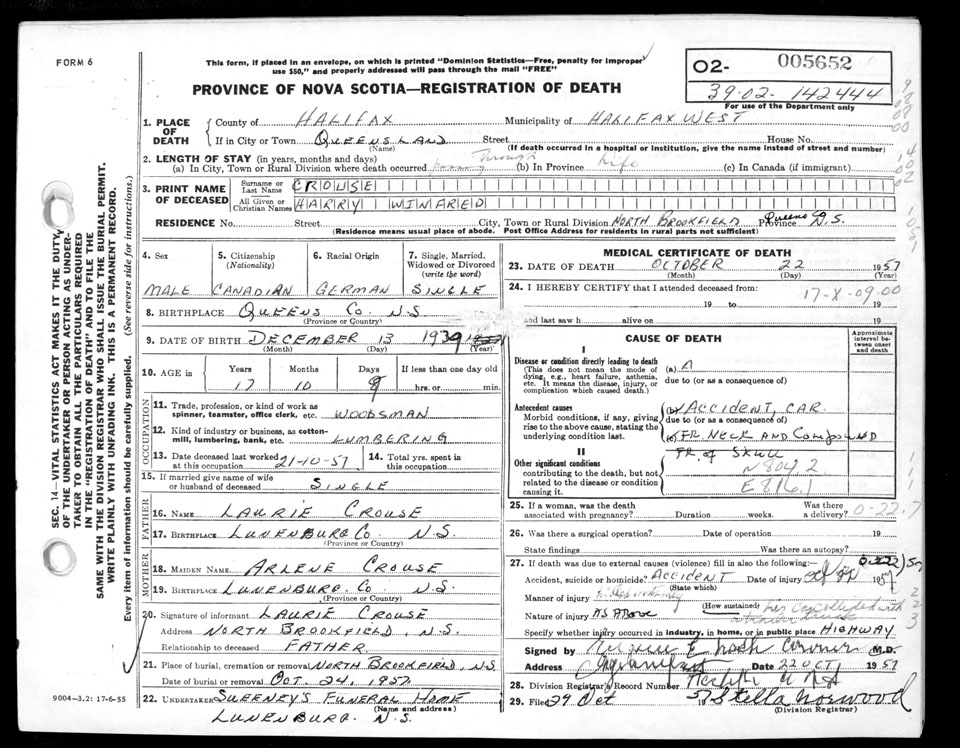 FORM 6
This form, if placed in an envelope, on which is printed "Dominion Statistics—Free, penalty for improper
use $50," and properly addressed will pass through the mail "FREE"
PROVINCE OF NOVA SCOTIA—REGISTRATION OF DEATH
02- 005652
39-02- 142444
For use of the Department only
1. PLACE OF DEATH
County of HALIFAX Municipality of HALIFAX WEST
If in City or Town QUEENSLAND Street House No.
(Name) (If death occurred in a hospital or institution, give the name instead of street and number)
2. LENGTH OF STAY (in years, months and days)
(a) In City, Town or Rural Division where death occurred Through (b) In Province Life (c) In Canada (if immigrant)
3. PRINT NAME OF DECEASED
Surname or Last Name CROUSE
All Given or Christian Names HARRY WINFRED
RESIDENCE No. Street City, Town or Rural Division NORTH BROOKFIELD Queens Co Province N.S.
(Residence means usual place of abode. Post Office Address for residents in rural parts not sufficient)
4. Sex
MALE
5. Citizenship (Nationality)
CANADIAN
6. Racial Origin
GERMAN
7. Single, Married, Widowed or Divorced (write the word)
SINGLE
8. BIRTHPLACE QUEENS CO. N.S.
(Province or Country)
9. DATE OF BIRTH DECEMBER 13 1939
(Month) (Day) (Year)
10. AGE in Years Months Days If less than one day old
17 10 9 hrs. or min.
OCCUPATION
11. Trade, profession, or kind of work as spinner, teamster, office clerk, etc. WOODSMAN
12. Kind of industry or business, as cotton-mill, lumbering, bank, etc. LUMBERING
13. Date deceased last worked at this occupation 21-10-57
14. Total yrs. spent in this occupation
15. If married give name of wife or husband of deceased SINGLE
FATHER
16. NAME LAURIE CROUSE
17. BIRTHPLACE LUNENBURG CO. N.S.
(Province or Country)
MOTHER
18. MAIDEN NAME ARLENE CROUSE
19. BIRTHPLACE LUNENBURG. CO N.S.
(Province or Country)
20. Signature of informant LAURIE CROUSE
Address NORTH BROOKFIELD, N.S.
Relationship to deceased FATHER.
21. Place of burial, cremation or removal NORTH BROOKFIELD, N.S.
Date of burial or removal OCT. 24, 1957
22. UNDERTAKER SWEENEY'S FUNERAL HOME
(Name and address)
LUNENBURG. N.S.
9004—3.2: 17-6-55
MEDICAL CERTIFICATE OF DEATH
23. DATE OF DEATH OCTOBER 22 1957
(Month) (Day) (Year)
24. I HEREBY CERTIFY that I attended deceased from:
17-X-09.00
19 to 19
and last saw h alive on 19
CAUSE OF DEATH
Approximate interval between onset and death
I
Disease or condition directly leading to death
(This does not mean the mode of dying, e.g., heart failure, asthenia, etc. It means the disease, injury, or complication which caused death.)
(a) A
due to (or as a consequence of)
Antecedent causes
Morbid conditions, if any, giving rise to the above cause, stating the underlying condition last.
(b) ACCIDENT, CAR.
due to (or as a consequence of)
(c) FR. NECK AND COMPOUND
FR. of SKULL
II
Other significant conditions
contributing to the death, but not related to the disease or condition causing it.
N804.2
E816.1
25. If a woman, was the death associated with pregnancy? Duration weeks. Was there a delivery? 0-22.7
26. Was there a surgical operation? Date of operation 19
State findings Was there an autopsy?
27. If death was due to external causes (violence) fill in also the following:—
Accident, suicide or homicide? ACCIDENT Date of injury Oct 22 1957
(State which)
Manner of injury
(How sustained) his car collided with
Nature of injury AS ABOVE
Specify whether injury occurred in industry, in home, or in public place HIGHWAY
Signed by M.D.
Address Date 22 OCT 1957
28. Division Registrar's Record Number
29. Filed 29 Oct 1957 Stella Norwood
(Division Registrar)
SEC. 14—VITAL STATISTICS ACT MAKES IT THE DUTY
OF THE UNDERTAKER OR PERSON ACTING AS UNDER-
TAKER TO OBTAIN ALL THE PARTICULARS REQUIRED
IN THE "REGISTRATION OF DEATH" AND TO FILE THE
SAME WITH THE DIVISION REGISTRAR WHO SHALL ISSUE THE BURIAL PERMIT.
WRITE PLAINLY WITH UNFADING INK. THIS IS A PERMANENT RECORD.
Every item of information should be carefully supplied. (See reverse side for instructions.)